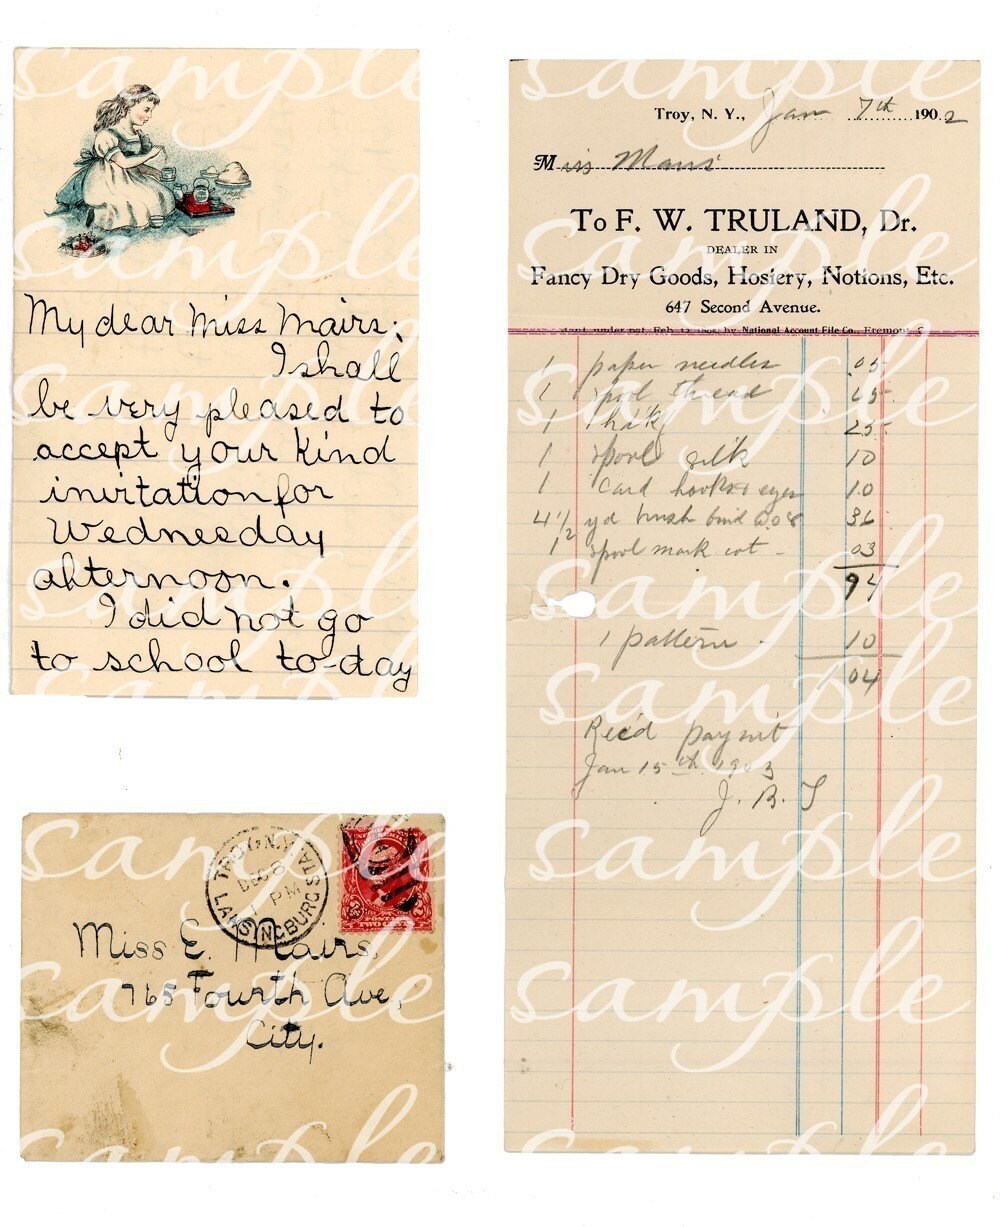 My dear Miss Mairs;
I shall
be very pleased to
accept your kind
invitation for
Wednesday
afternoon.
I did not go
to school to-day
TROY N.Y.
DEC 8
1 PM
LANSINGBURG STA.
POSTAGE
Miss E. Mairs,
765 Fourth Ave,
City.
Troy, N. Y., Jan 7th 1902
Miss Mairs
To F. W. TRULAND, Dr.
DEALER IN
Fancy Dry Goods, Hosiery, Notions, Etc.
647 Second Avenue.
by National Account File Co., Fremont, O
1 paper needles .05
1 spool thread
1 25
1 spool silk 10
1 card hooks & eyes 10
4 1/2 yd brush bind 0.08 36
1 spool mark cot - 03
94
1 pattern - 10
1 04
Rec'd paymt
Jan 15th 1903
J. B. T
sample